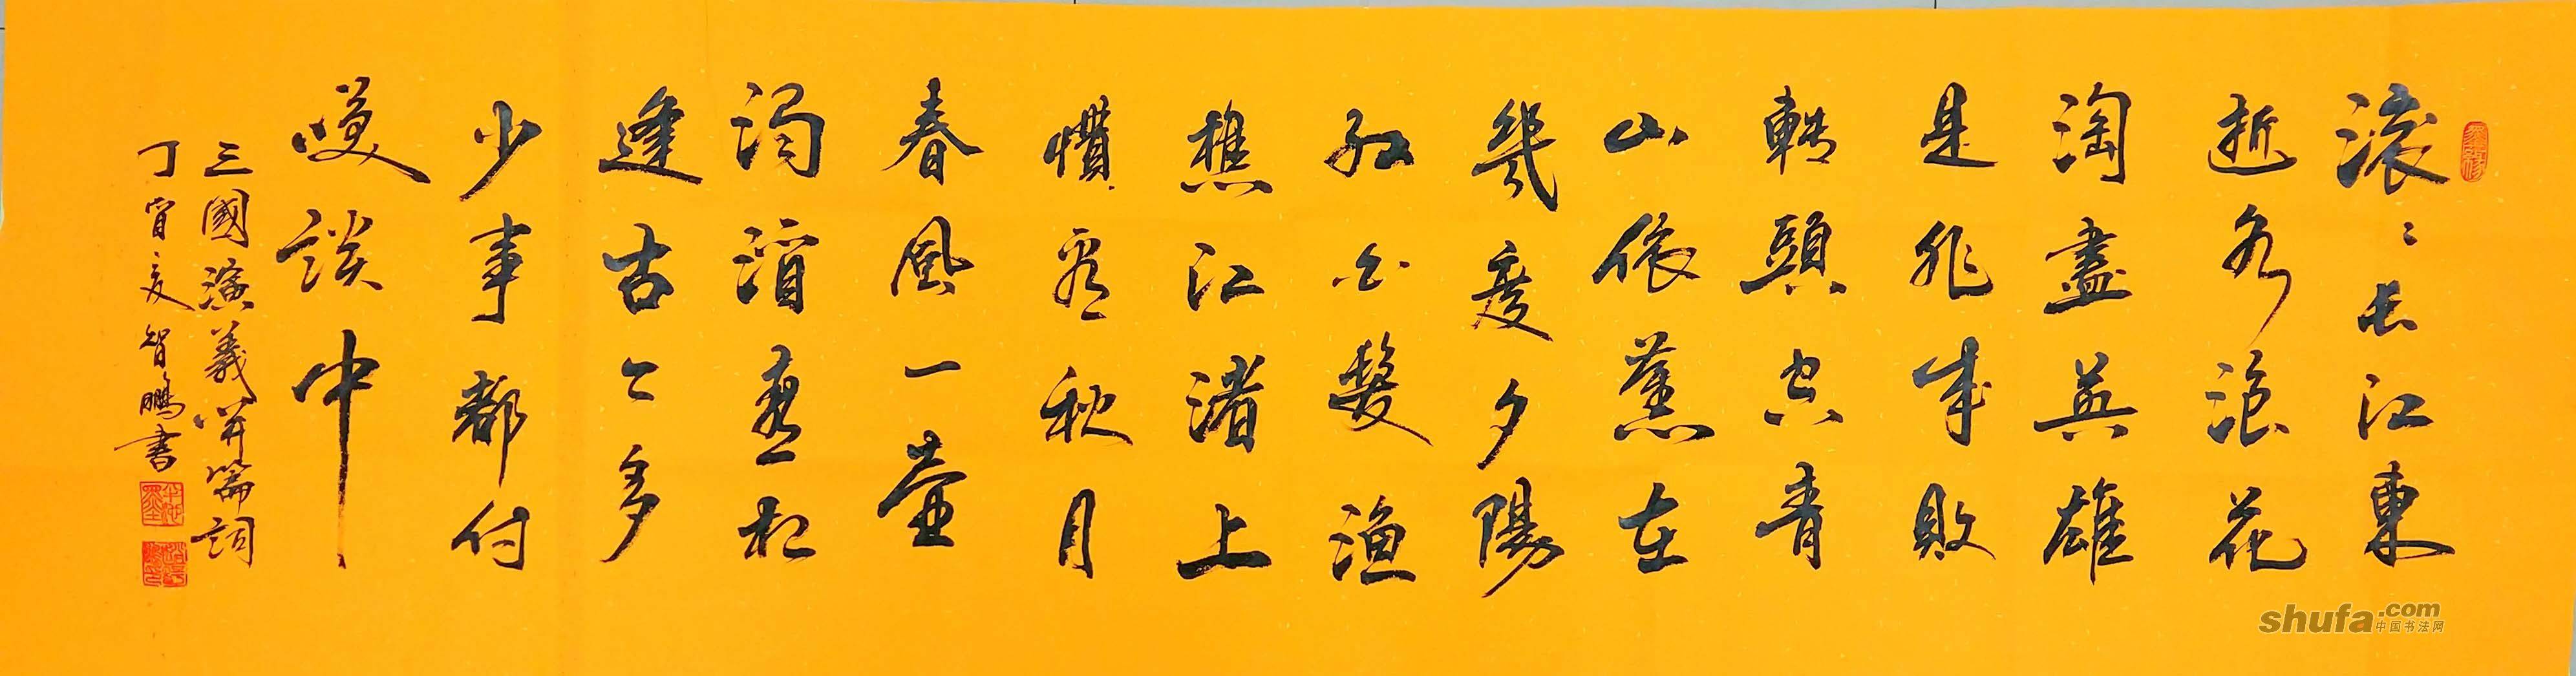 滚〻長江東
逝水浪花
淘盡英雄
是非成敗
轉頭空青
山依舊在
幾度夕陽
紅白髮漁
樵江渚上
慣看秋月
春風一壺
濁酒喜相
逢古今多
少事都付
笑談中
三國演義開篇詞
丁酉夏智鵬書
shufa.com
中国书法网